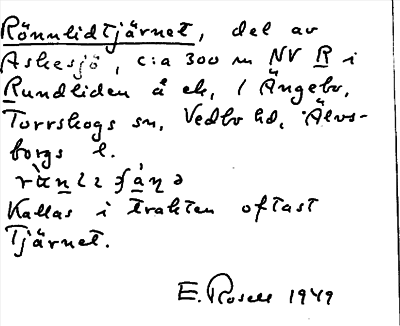 Rönnlidtjärnet, del av
Askesjö, c:a 300 m NV R i
Rundliden å ek. 1 Ängebo,
Torrskogs sn, Vedbo hd, Älvs-
borgs l.
Kallas i trakten oftast
Tjärnet.
E. Rosell 1949